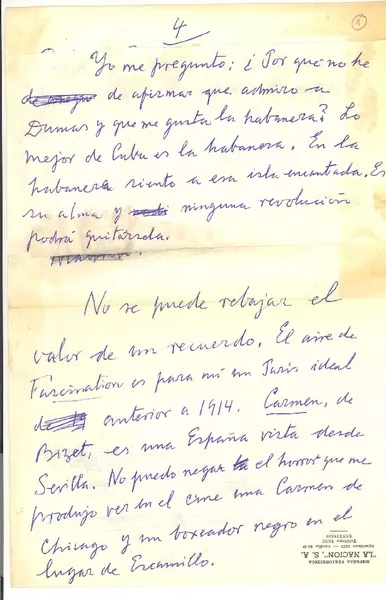 4
1
Yo me pregunto: ¿Por qué no he
de afirmar que admiro a
Dumas y que me gusta la habanera? Lo
mejor de Cuba es la habanera. En la
habanera siento a esa isla encantada. Es
su alma y ninguna revolución
podrá quitársela.
No se puede rebajar el
valor de un recuerdo. El aire de
Fascination es para mí un París ideal
anterior a 1914. Carmen, de
Bizet, es una España vista desde
Sevilla. No puedo negar el horror que me
produjo ver en el cine una Carmen de
Chicago y un boxeador negro en el
lugar de Escamillo.
EMPRESA PERIODISTICA
"LA NACION", S. A.
SANTIAGO